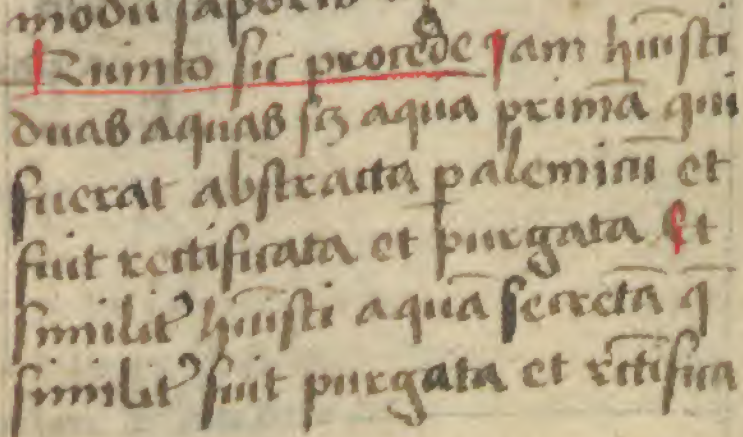 modū saporis
Quinto sic procede Jam hūisti
duas aquas scꝫ aqua primā qui
fuerat abstracta ꝑ alemicū et
fuit rectificata et purgata Et
similitꝰ hūisti aquā secretā q̄
similitꝰ fuit purgata et rc̄tifica